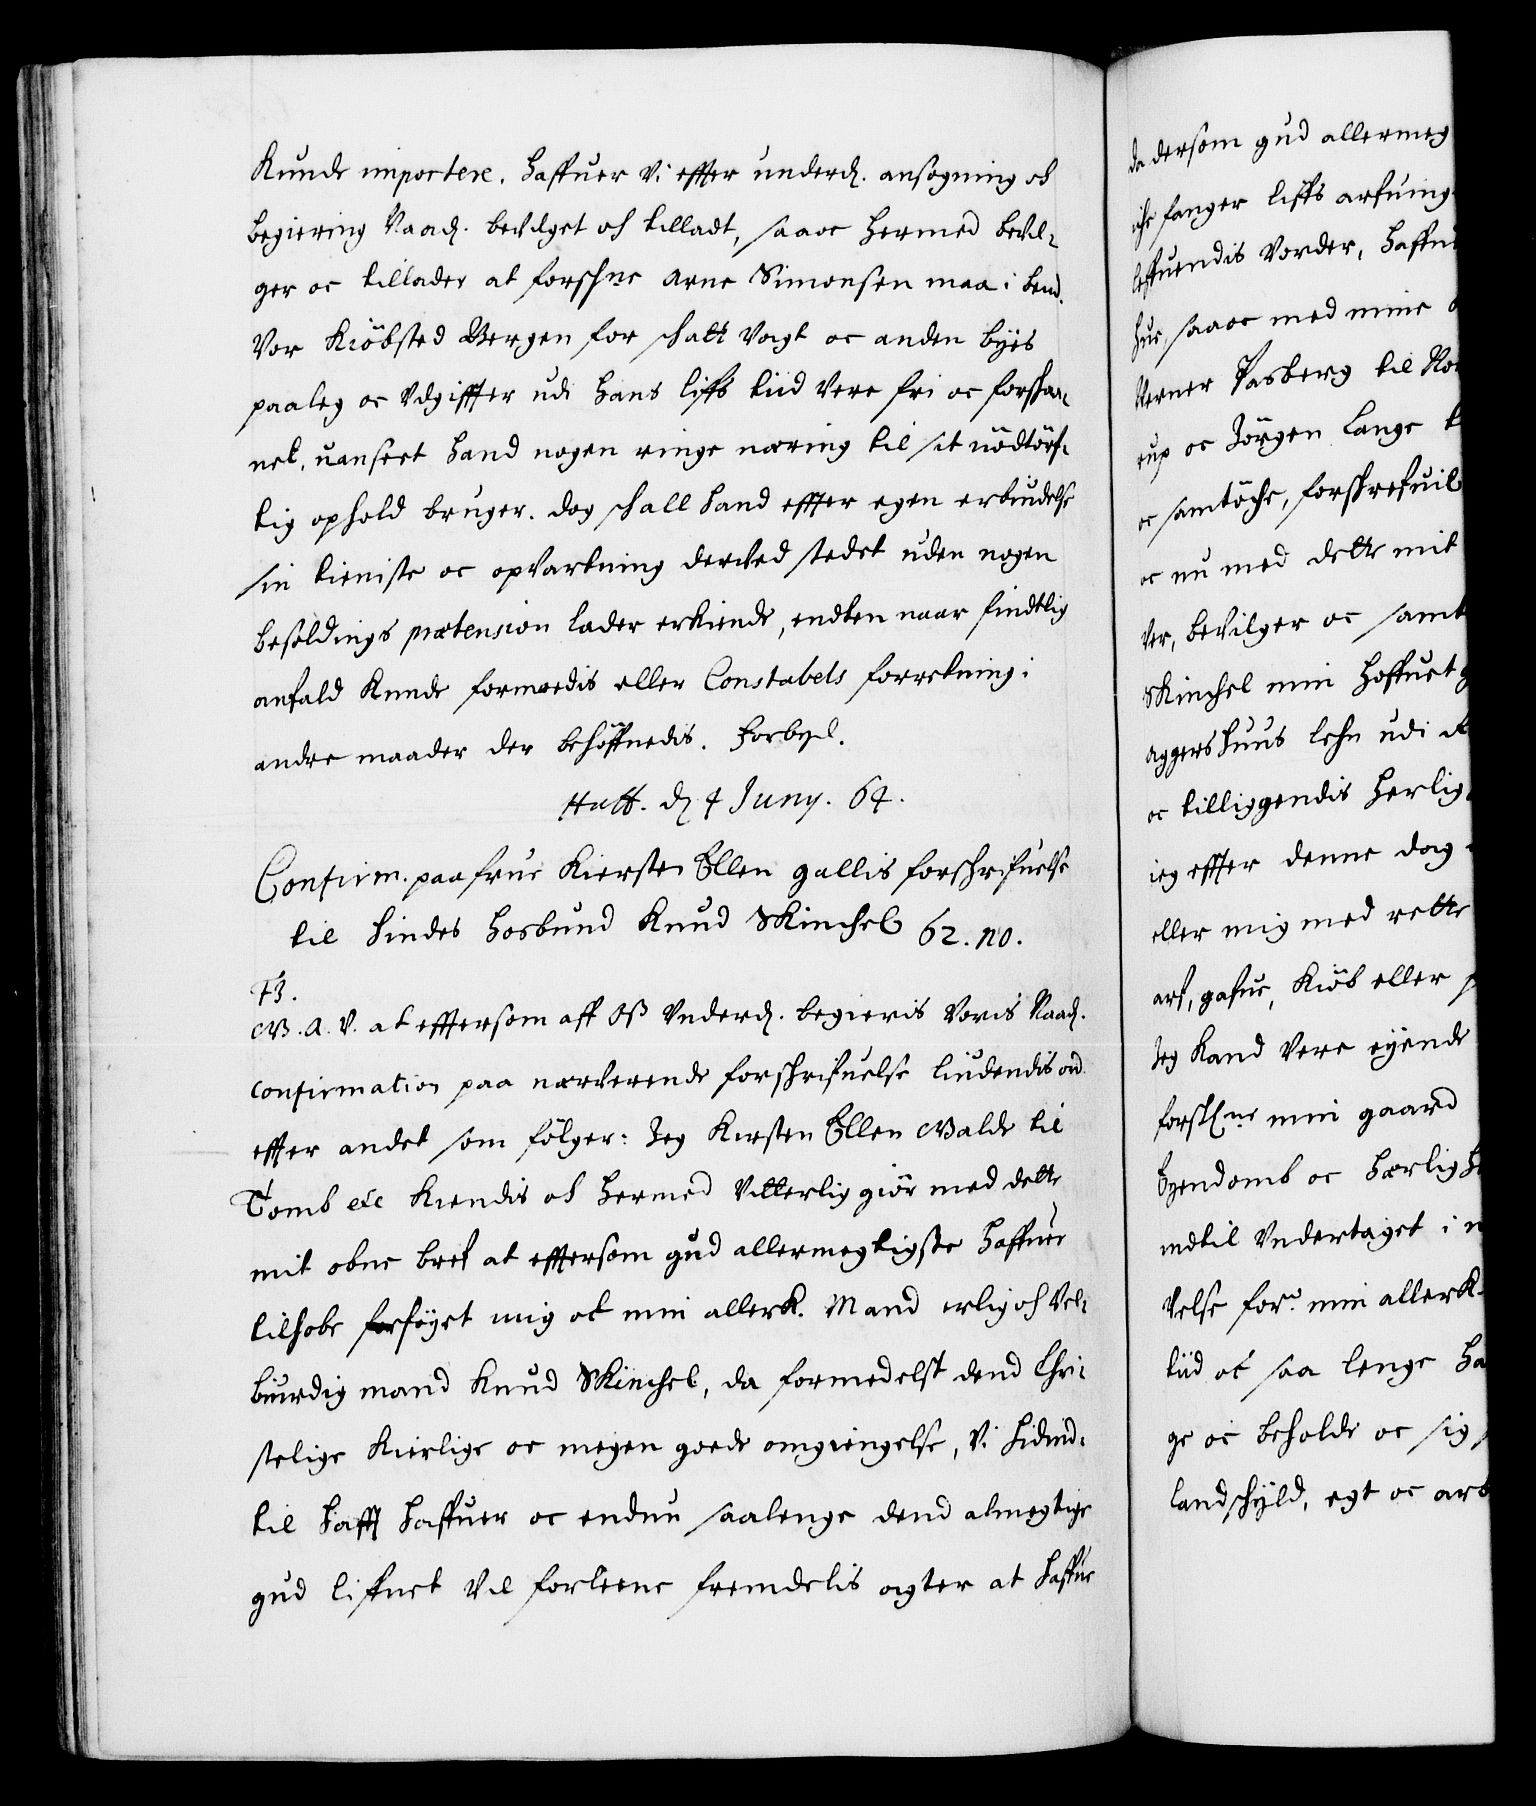 Kunde importere. Haffuer Vi effter underd. ansøgning och
begiering Naad. bevilget och tilladt, saa oc hermed bevil-
ger oc tillader at forschne Arne Simonsen maa i bemd.
Vor Kiöbsted Bergen for schatt Vagt oc anden byis
paaleg oc Udgiffter udi hans liffs tiid Vere fri oc forschaa-
net, uanseet hand nogen ringe næring til sit nödtörf-
tig ophold bruger. dog schall hand effter egen erbiudelse
sin tieniste oc opvartning derved stedet uden nogen
besoldings prætension lader erkiende, endten naar findtlig
anfald Kunde formerdis eller Constabels forretning i
andre maader der behöffuedis. Forbyd.
Haff. d 4 Juny. 64.
Confirm. paa frue Kiersten Ellen Gallis forschrifuelse
til hindes Hosbund Knud Skinchel 62. no.
F3.
G.A.V. at efftersom aff Oß Underd. begieris Voris Naad.
confirmation paa nærverende forschrifuelse liudendis ord
effter andet som fölger: Jeg Kirsten Ellen Galde til
Tomb etc Kiendis och hermed Vitterlig giör med dette
mit obne bref at efftersom gud allermegtigste haffuer
tilhobe forföyet mig oc min allerk. Mand erlig och Vel-
biurdig mand Knud Skinchel, da formedelst dend Chri-
stelige Kierlige oc megen goede omgiengelse, Vi hidind-
til hafft haffuer oc endnu saalenge dend almegtige
gud lifuet Vil forleene fremdelis agter at haffue
da dersom gud allermeg
iche fanger liffs arfuing
leffuendis Vorder, haffu
hus, saa oc med mine
Verner Pasberg til
rup oc Jörgen Lange
oc samtöche, forschrefuil
oc nu med dette mit
ver, bevilger oc samt
Skinchel min hoffuet
Aggershuus lehn udi
oc tilliggendis herlig
ieg effter denne dag
eller mig med rette
arf, gafue, Kiöb eller
Jeg Kand Vere eyende
forschne min gaard
Eyendomb oc hærligh
indtil Undertaget i
velse for: min allerk.
tiid oc saa lenge ha
ge oc beholde oc sig
landschyld, egt oc arb